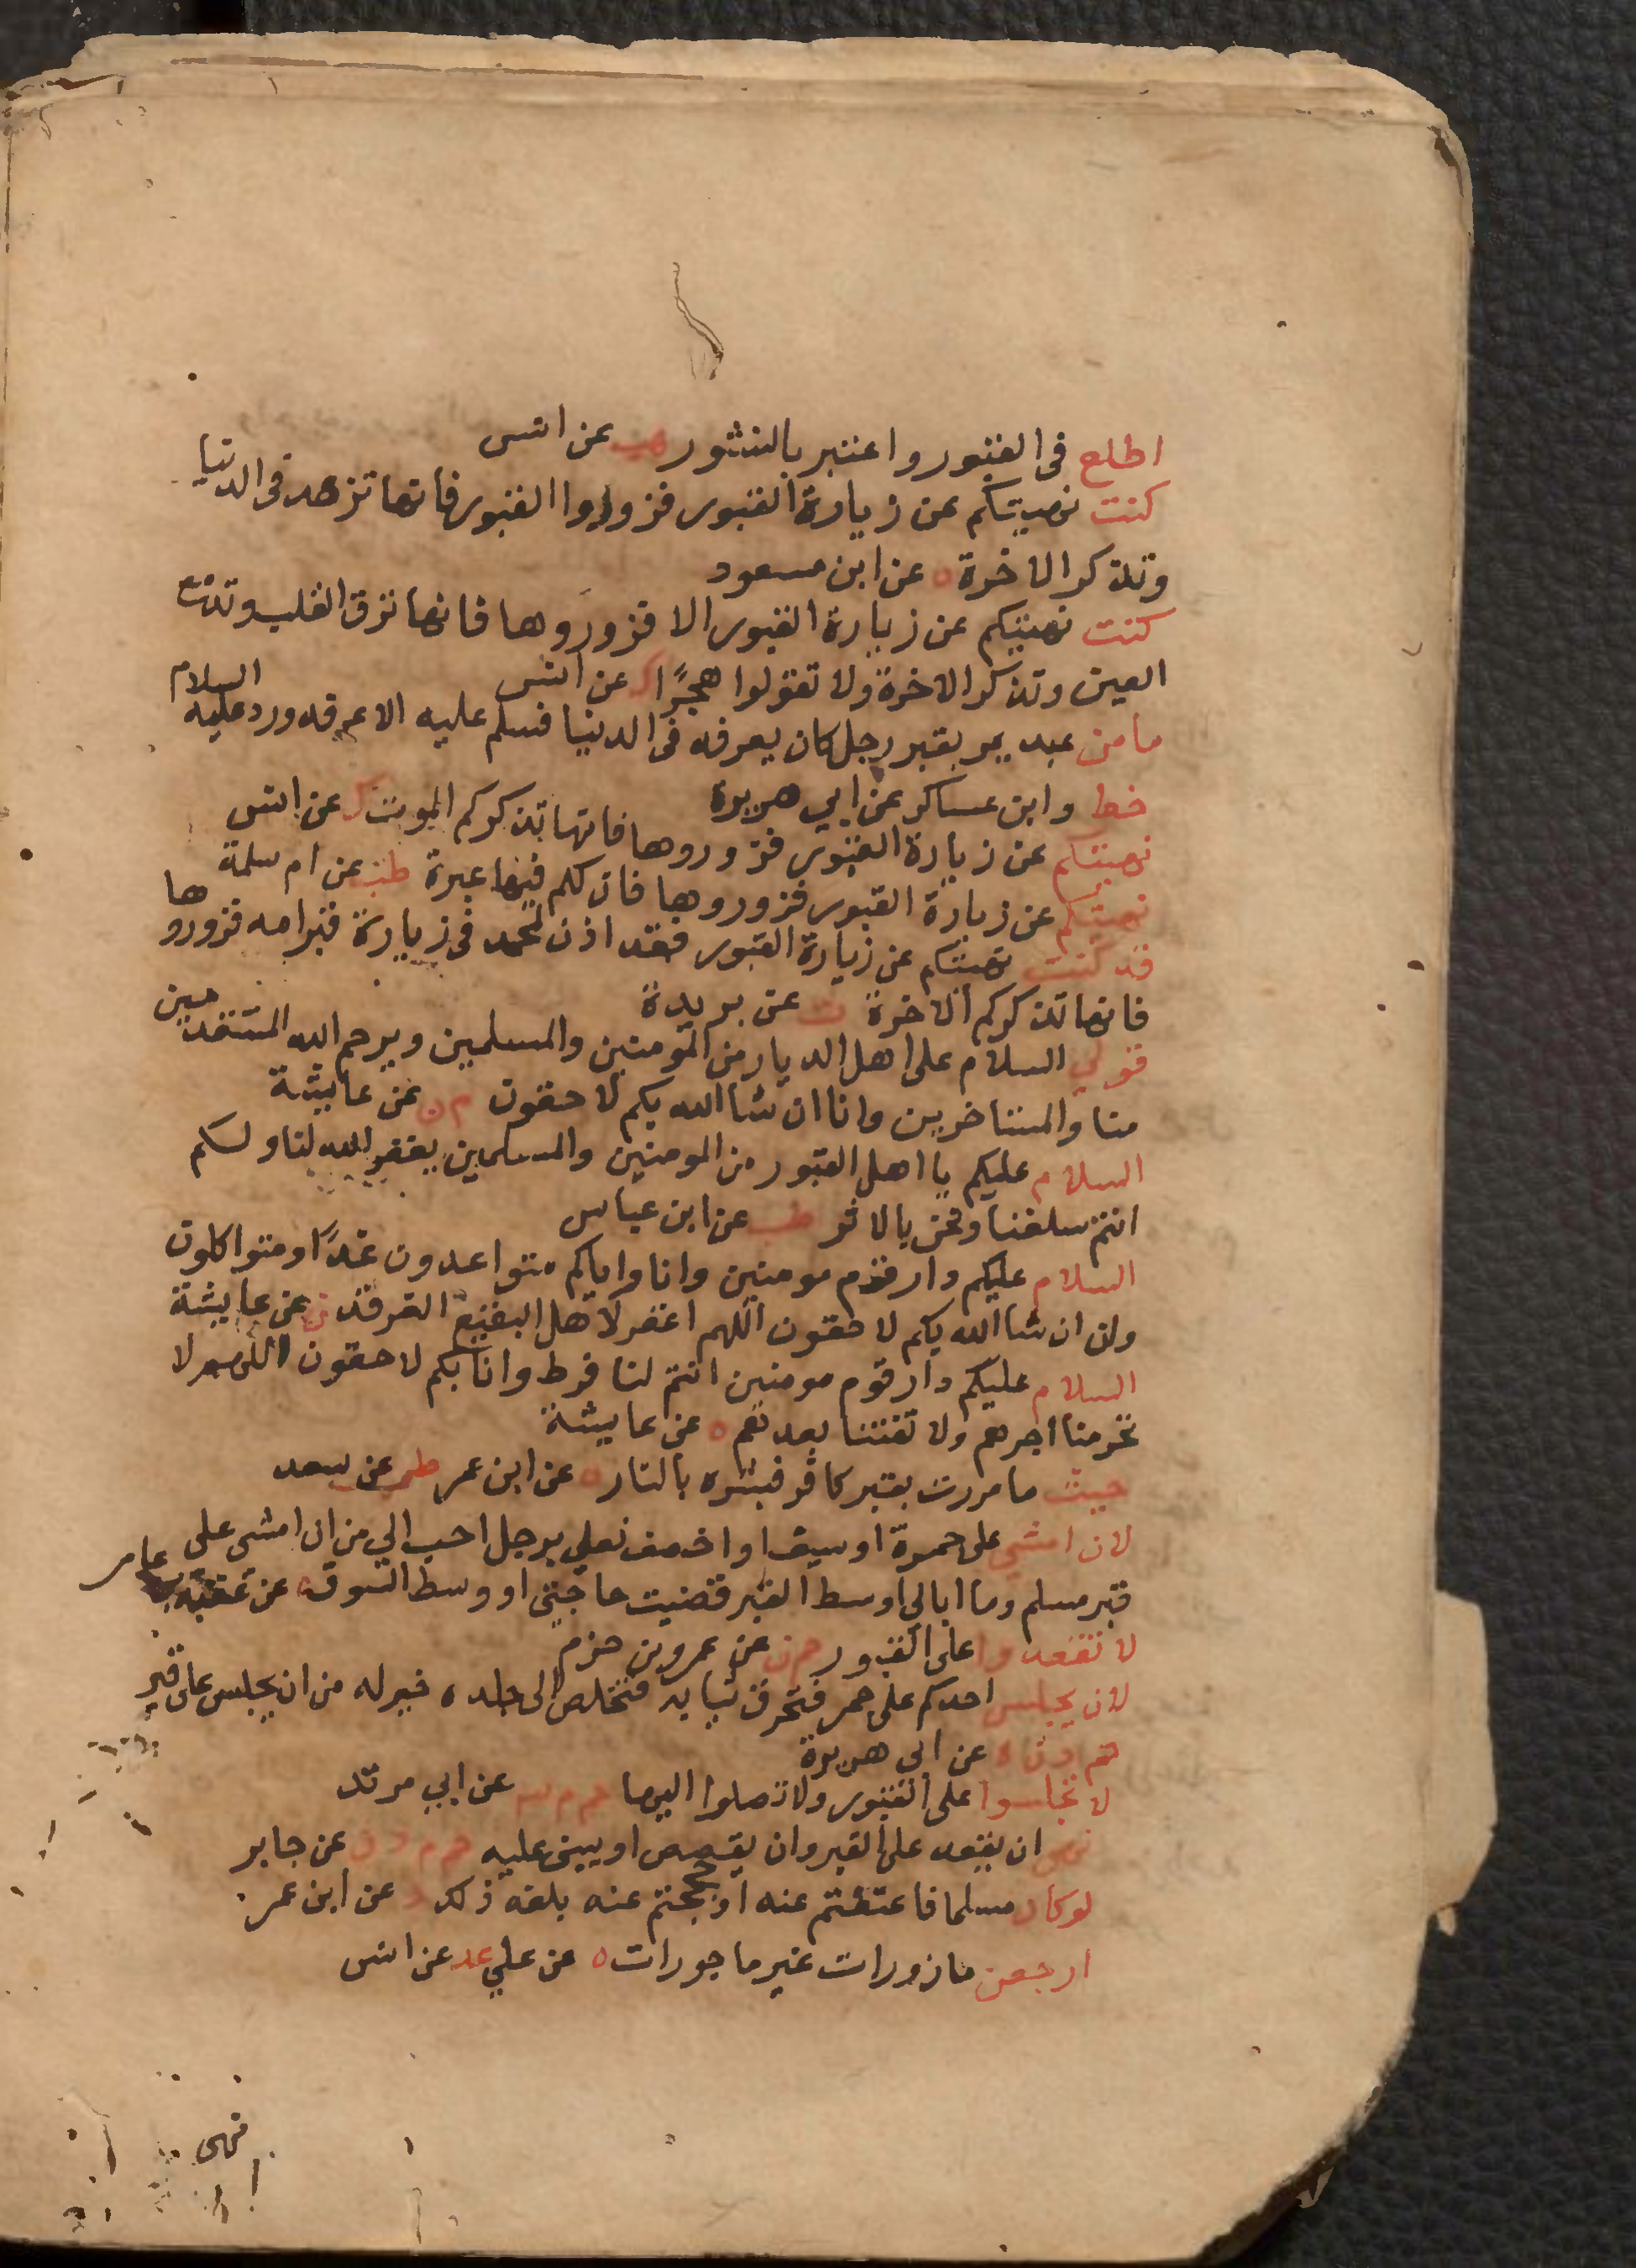 اطلع في القبور واعتبر بالنشور هب عن انس
كنت نهيتكم عن زيارة القبور فزوروا القبور فانها تزهد في الدنيا
وتذكر الاخرة ه عن ابن مسعود
كنت نهيتكم عن زيارة القبور الا فزوروها فانها ترق القلب وتدمع
العين وتذكر الاخرة ولا تقولوا هجرًا ك عن انس
ما من عبد يمر بقبر رجل كان يعرفه في الدنيا فسلم عليه الا عرفه ورد عليه السلام
خط وابن عساكر عن ابي هريرة
نهيتكم عن زيارة القبور فزوروها فانها تذكركم الموت ك عن انس
نهيتكم عن زيارة القبور فزوروها فان لكم فيها عبرة طب عن ام سلمة
قد كنت نهيتكم عن زيارة القبور فقد اذن لمحمد في زيارة قبر امه فزوروها
فانها تذكركم الاخرة ت عن بريدة
قولي السلام على اهل الديار من المومنين والمسلمين ويرحم الله المستقدمين
منا والمستاخرين وانا ان شا الله بكم لاحقون م ن عن عايشة
السلام عليكم يا اهل القبور من المومنين والمسلمين يغفر الله لنا ولكم
انتم سلفنا ونحن بالاثر طب عن ابن عباس
السلام عليكم دار قوم مومنين وانا واياكم متواعدون غدًا ومتواكلون
وان ان شا الله بكم لاحقون اللهم اغفر لاهل البقيع الغرقد ن عن عايشة
السلام عليكم دار قوم مومنين انتم لنا فرط وانا بكم لاحقون اللهم لا
تحرمنا اجرهم ولا تفتنا بعدهم ه عن عايشة
حيث ما مررت بقبر كافر فبشره بالنار ه عن ابن عمر طب عن سعد
لان امشي على جمرة او سيف او اخصف نعلي برجل احب الي من ان امشي على
قبر مسلم وما ابالي اوسط القبر قضيت حاجتي او وسط السوق ه عن عقبة بن عامر
لا تقعدوا على القبور حم ن عن عمرو بن حزم
لان يجلس احدكم على جمر فتحرق ثيابه فتخلص الى جلده خير له من ان يجلس على قبر
حم م د ن ه عن ابي هريرة
لا تجلسوا على القبور ولا تصلوا اليها حم م عن ابي مرثد
نهى ان يقعد على القبر وان يقصص او يبنى عليه حم م د ن عن جابر
لو كان مسلما فاعتقتم عنه او حججتم عنه بلغه ذلك د عن ابن عمر
ارجعن مازورات غير ماجورات ه عن علي عد عن انس
نهى